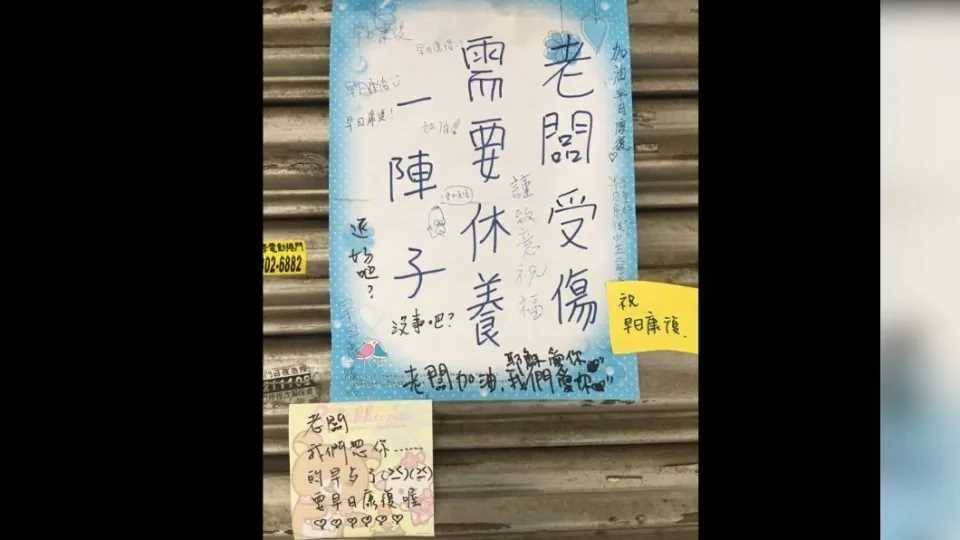 老闆受傷
需要休養
一陣子
加油早日康復♡
早日康復
早日康復!
加油!!
謹致意祝福
還好吧?
沒事吧?
耶穌愛你
老闆加油,我們愛你
祝
早日康復.
老闆
我們想你……
的早点了
要早日康復喔
♡♡♡♡♡♡
02-6882